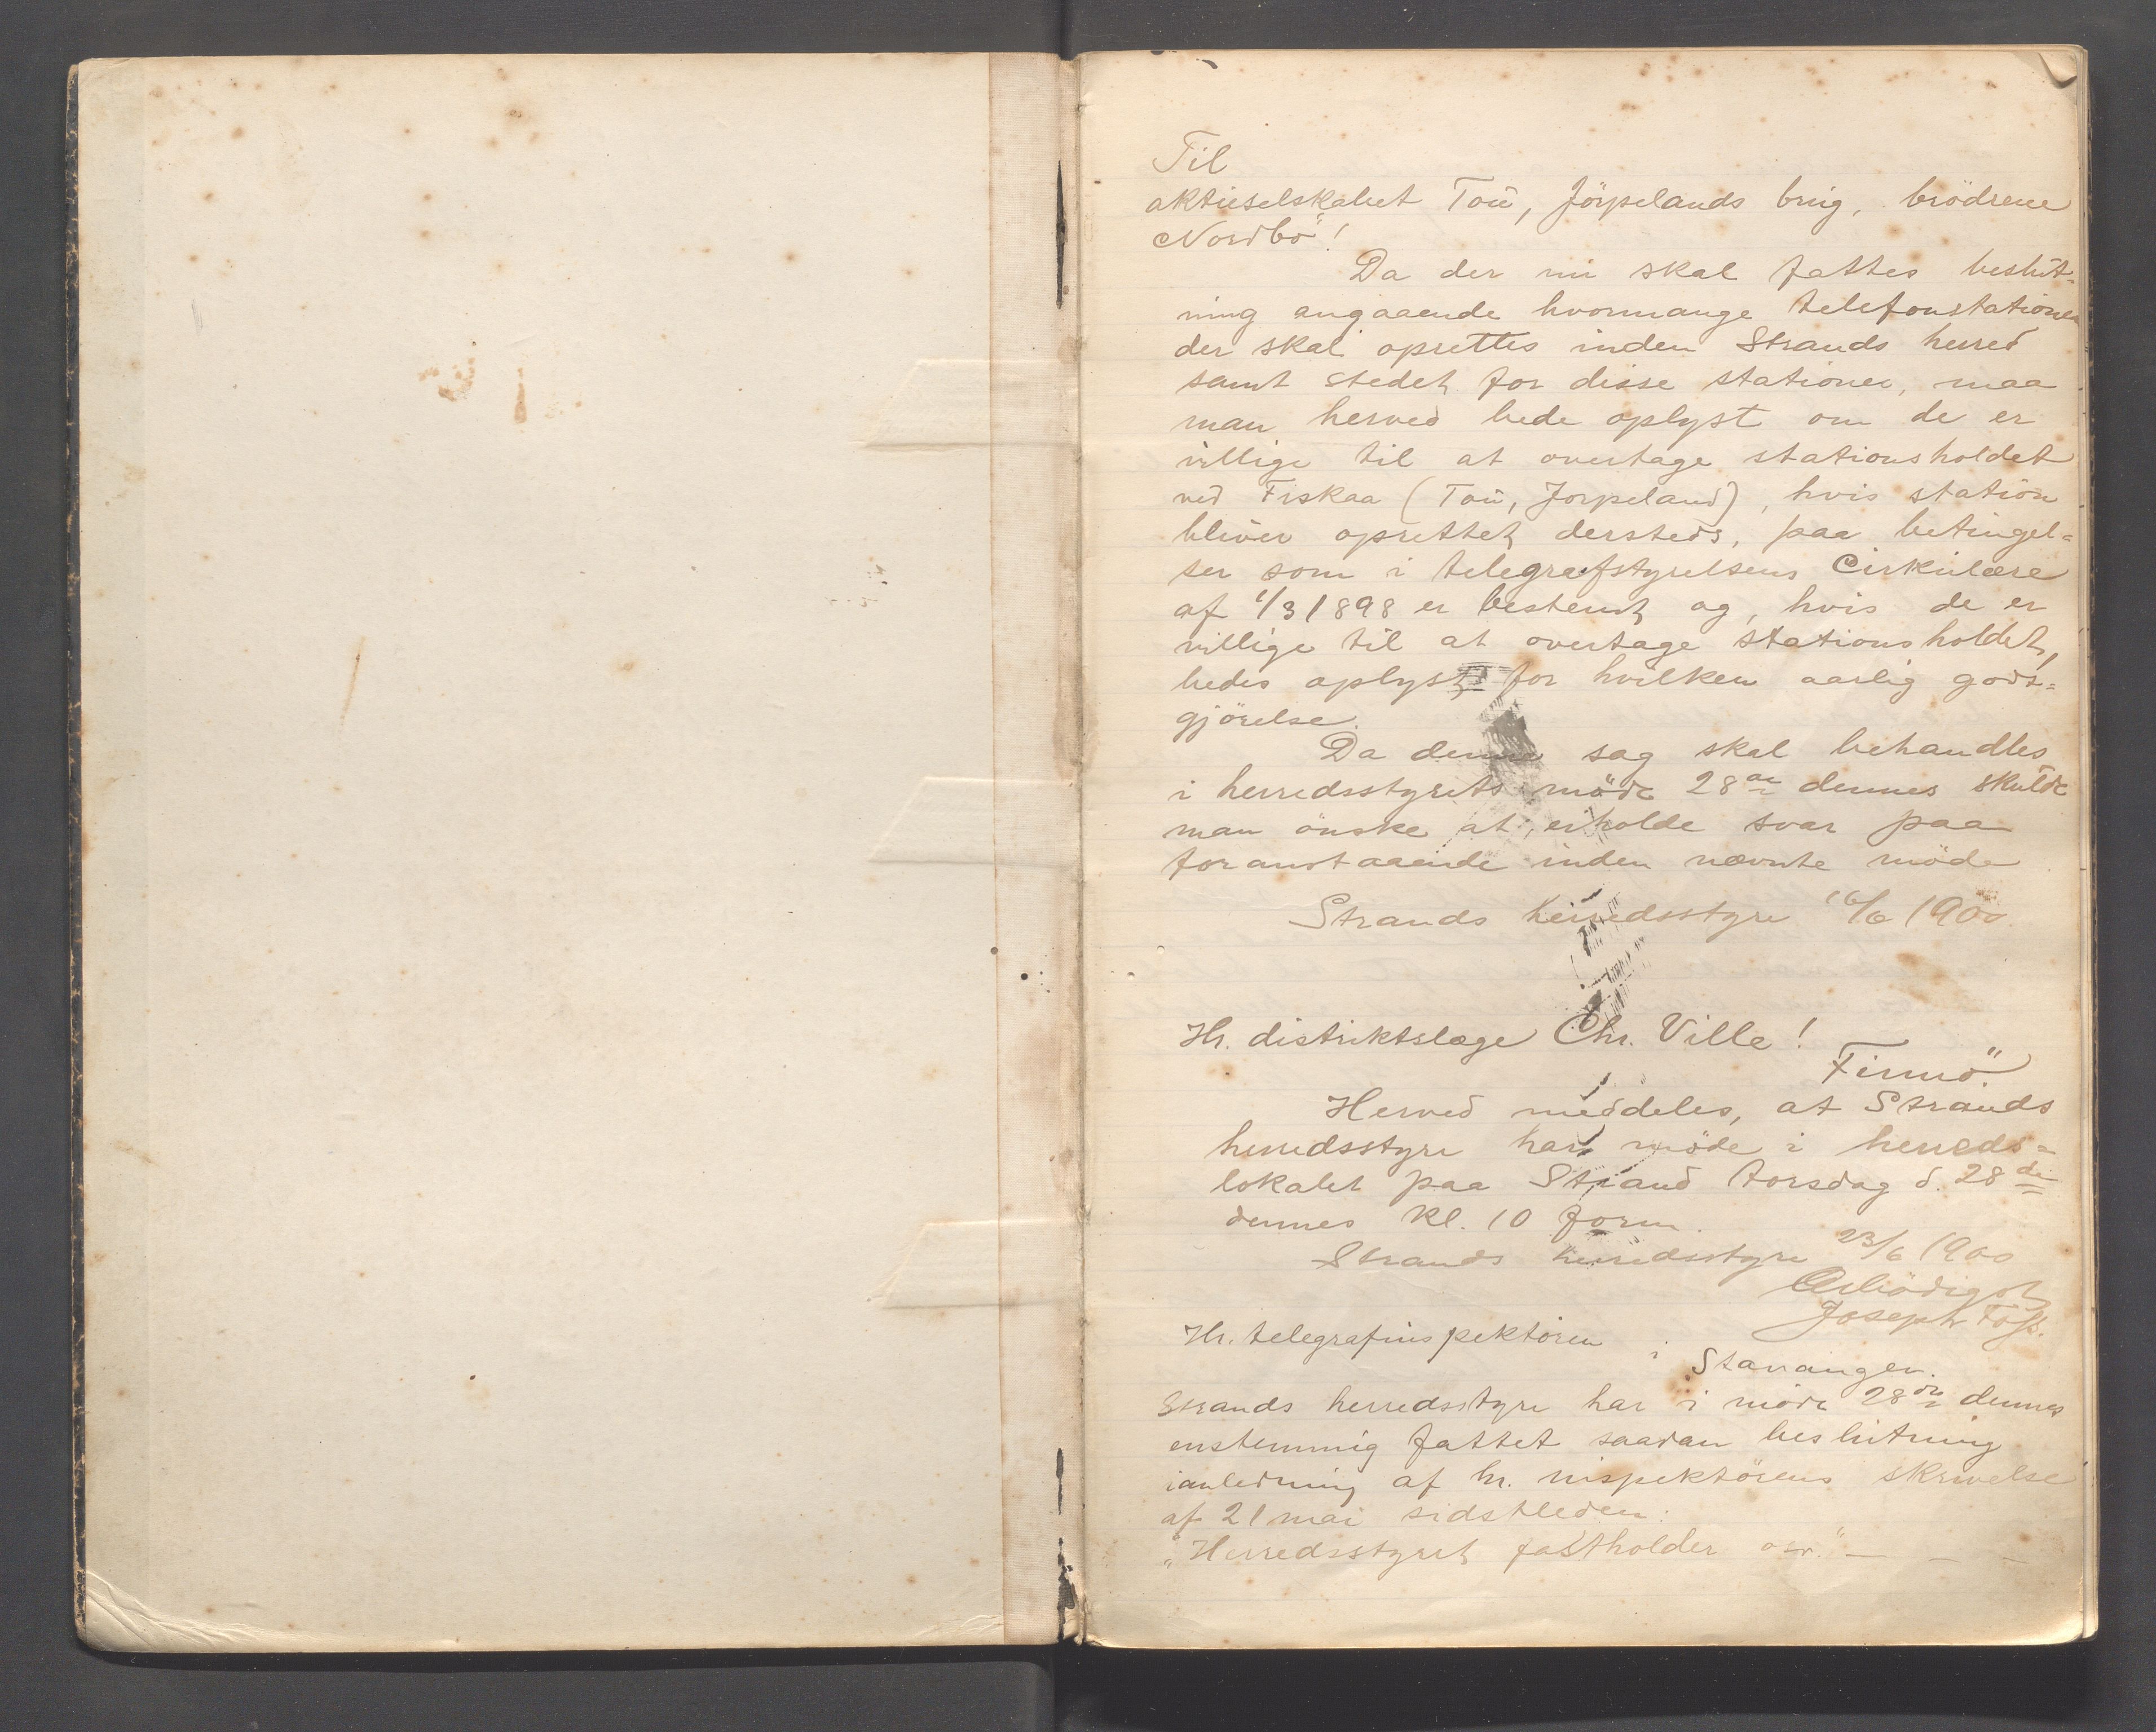 Til
aktieselskabet Tou, Jörpelands brug, brödrene
Nordbö!
Da der nu skal fattes beslut-
ning angaaende hvormange telefonstationer
der skal oprettes inden Strands herred
samt stedet for disse stationer, maa
man herved bede oplyst om de er
villige til at overtage stationsholdet
ved Fiskaa (Tou, Jorpeland), hvis station
bliver oprettet dersteds, paa betingel=
ser som i telegrafstyrelsens Cirkulære
af 1/3 1898 er bestemt og, hvis de er
villige til at overtage stationsholdet,
bedes oplyst for hvilken aarlig godt=
gjörelse.
Da denne sag skal behandles
i herredsstyrets möde 28de dennes skulde
man önske at erholde svar paa
foranstaaende inden nævnte möde
Strands herredsstyre 16/6 1900.
Hr. distriktslæge Chr. Ville!
Finnö.
Herved meddeles, at Strands
herredsstyre har möde i herreds=
lokalet paa Strand torsdag d. 28de
dennes kl. 10 form.
Strands herredsstyre 23/6 1900
Ærbödigst
Joseph Foss.
Hr. telegrafinspektören
i Stavanger.
Strands herredsstyre har i möde 28de dennes
enstemmig fattet saadan beslutning
ianledning af hr. inspektörens skrivelse
af 21 mai sidstleden:
"Herredsstyret fastholder osv." — — —